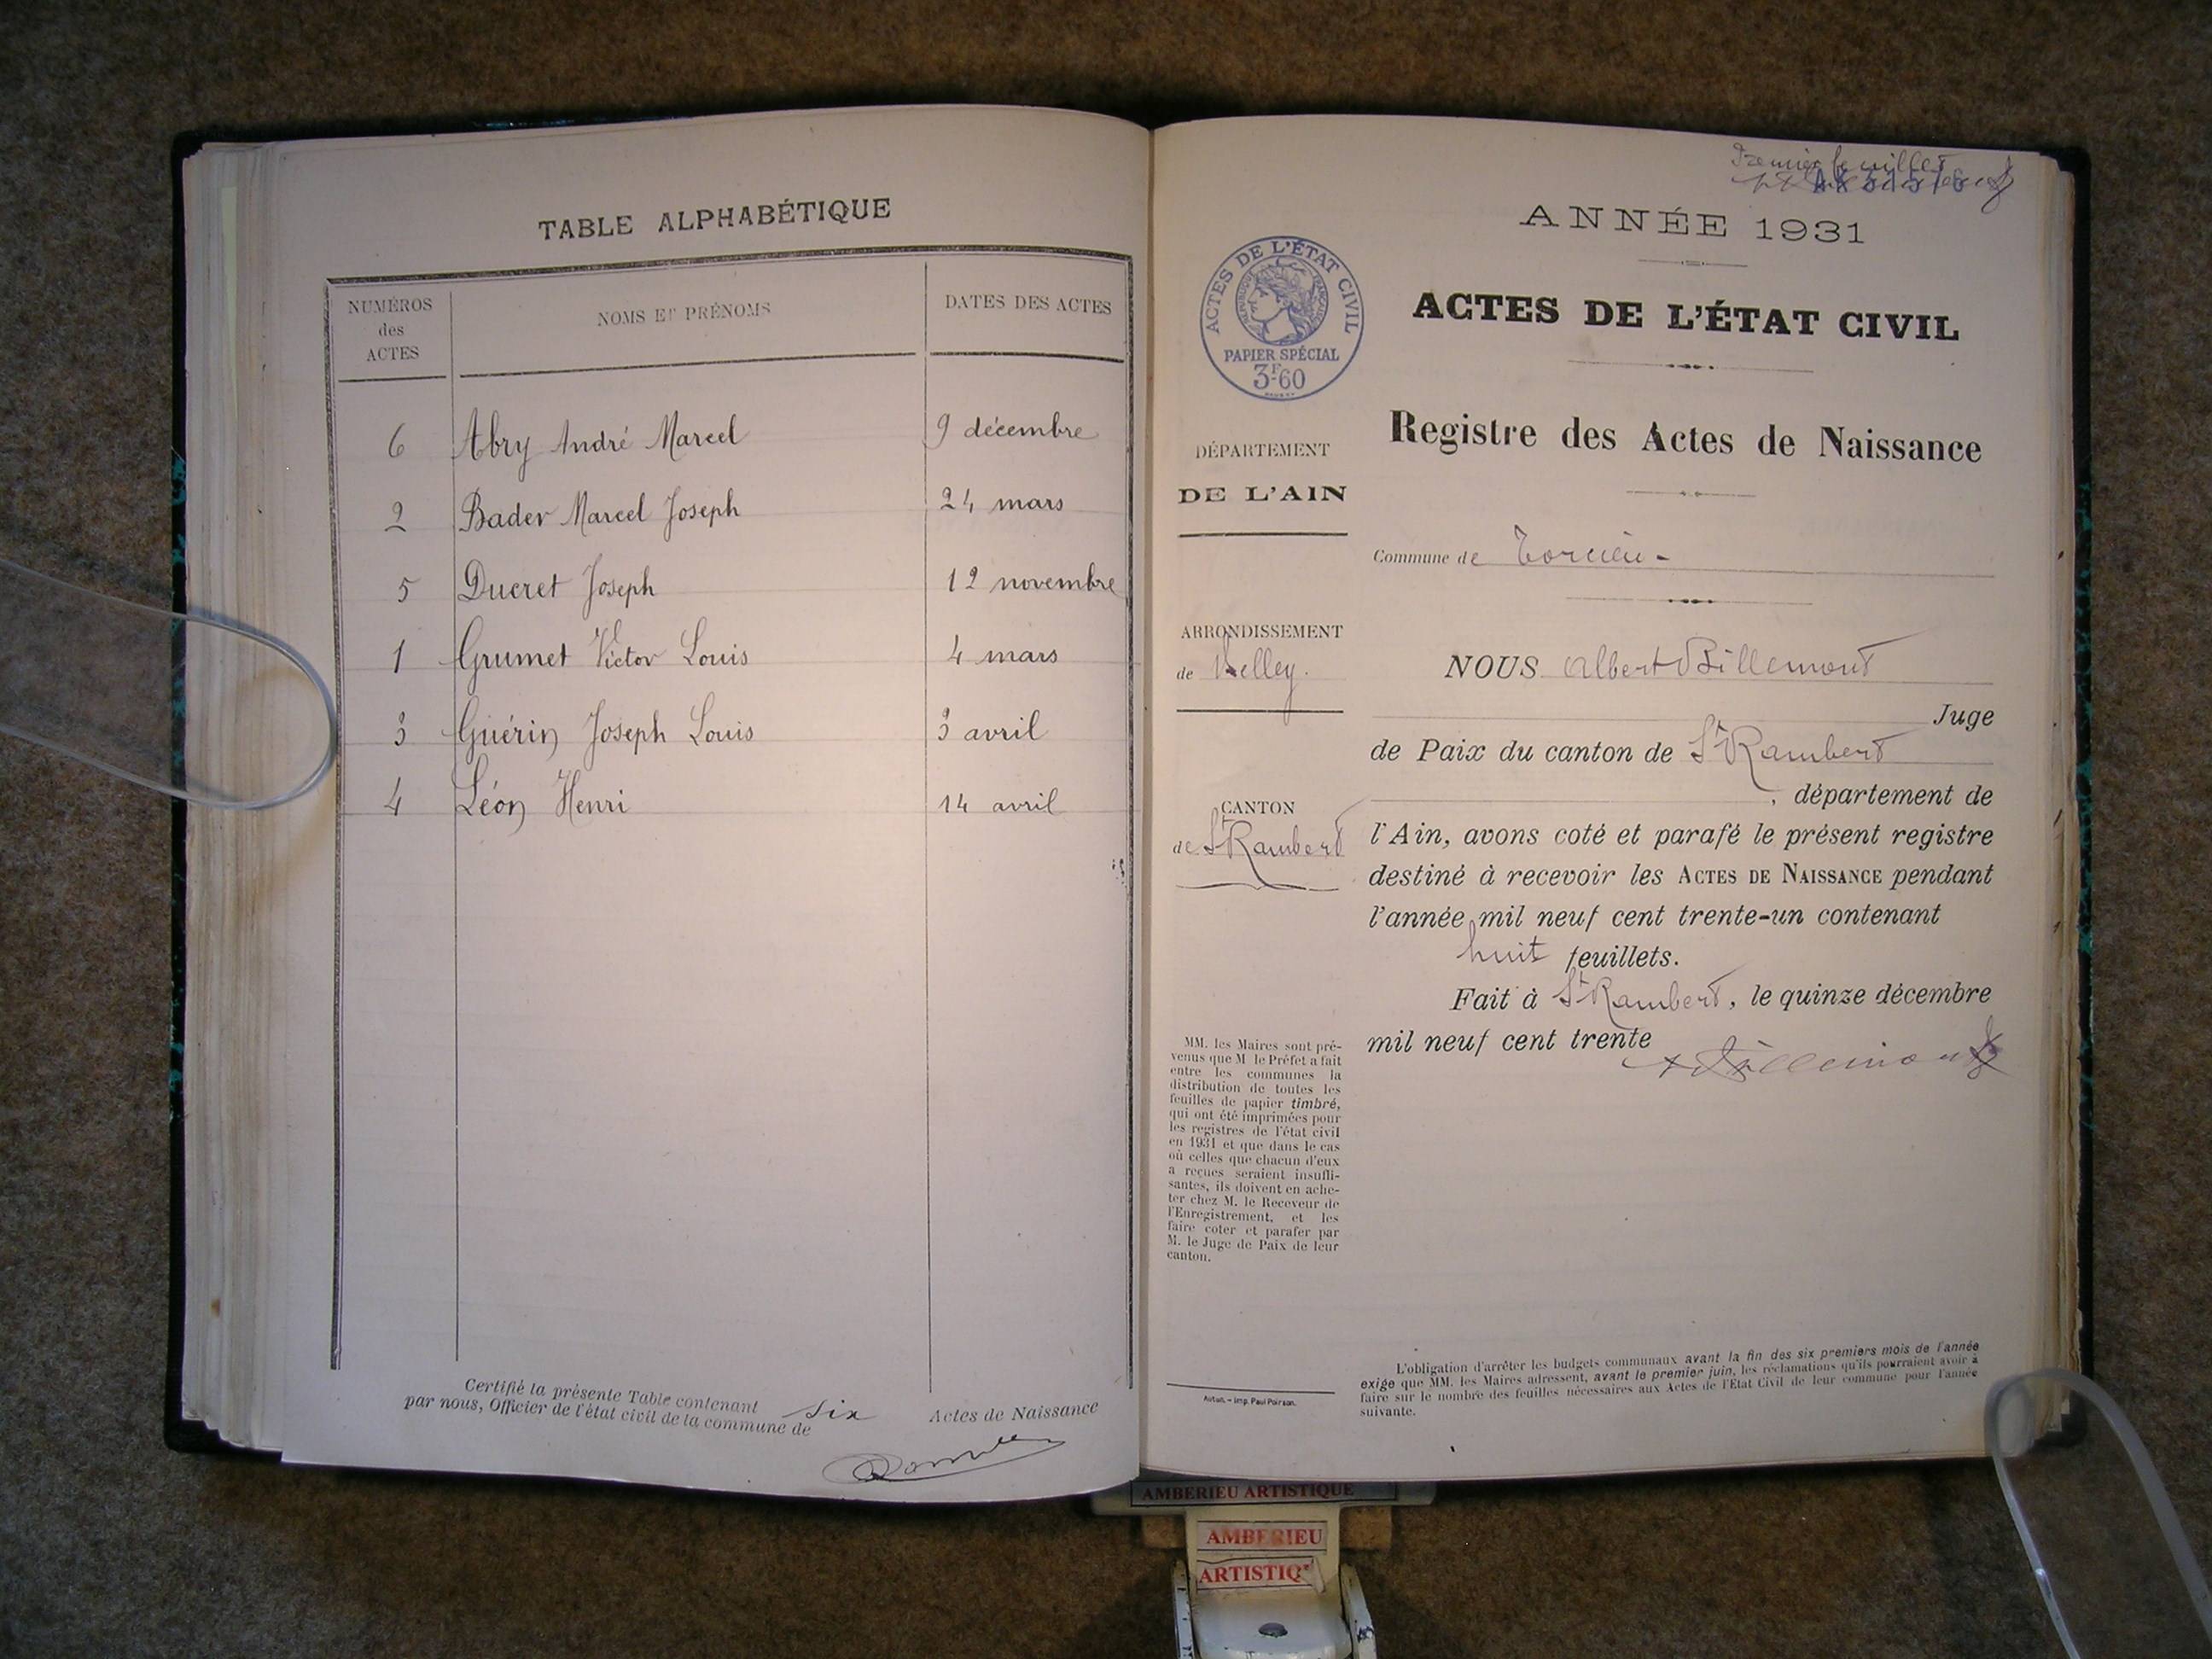 TABLE ALPHABÉTIQUE
NUMÉROS des ACTES
NOMS ET PRÉNOMS
DATES DES ACTES
6 Abry André Marcel 9 décembre
2 Bader Marcel Joseph 24 mars
5 Ducret Joseph 12 novembre
1 Grumet Victor Louis 4 mars
3 Guérin Joseph Louis 3 avril
4 Léon Henri 14 avril
Certifié la présente Table contenant six Actes de Naissance
par nous, Officier de l'état civil de la commune de
Premier feuillet
ANNÉE 1931
ACTES DE L'ÉTAT CIVIL
RÉPUBLIQUE FRANÇAISE
PAPIER SPÉCIAL
3F60
ACTES DE L'ÉTAT CIVIL
Registre des Actes de Naissance
DÉPARTEMENT
DE L'AIN
Commune de Torcieu
ARRONDISSEMENT
de Belley.
CANTON
de St Rambert
NOUS Albert Billemont
Juge
de Paix du canton de St Rambert
, département de
l'Ain, avons coté et parafé le présent registre
destiné à recevoir les ACTES DE NAISSANCE pendant
l'année mil neuf cent trente-un contenant
huit feuillets.
Fait à St Rambert, le quinze décembre
mil neuf cent trente
MM. les Maires sont pré-
venus que M. le Préfet a fait
entre les communes la
distribution de toutes les
feuilles de papier timbré,
qui ont été imprimées pour
les registres de l'état civil
en 1931 et que dans le cas
où celles que chacun d'eux
a reçues seraient insuffi-
santes, ils doivent en ache-
ter chez M. le Receveur de
l'Enregistrement, et les
faire coter et parafer par
M. le Juge de Paix de leur
canton.
Autun. – Imp. Paul Poirson.
L'obligation d'arrêter les budgets communaux avant la fin des six premiers mois de l'année
exige que MM. les Maires adressent, avant le premier juin, les réclamations qu'ils pourraient avoir à
faire sur le nombre des feuilles nécessaires aux Actes de l'Etat Civil de leur commune pour l'année
suivante.
AMBERIEU ARTISTIQUE
AMBERIEU
ARTISTIQ